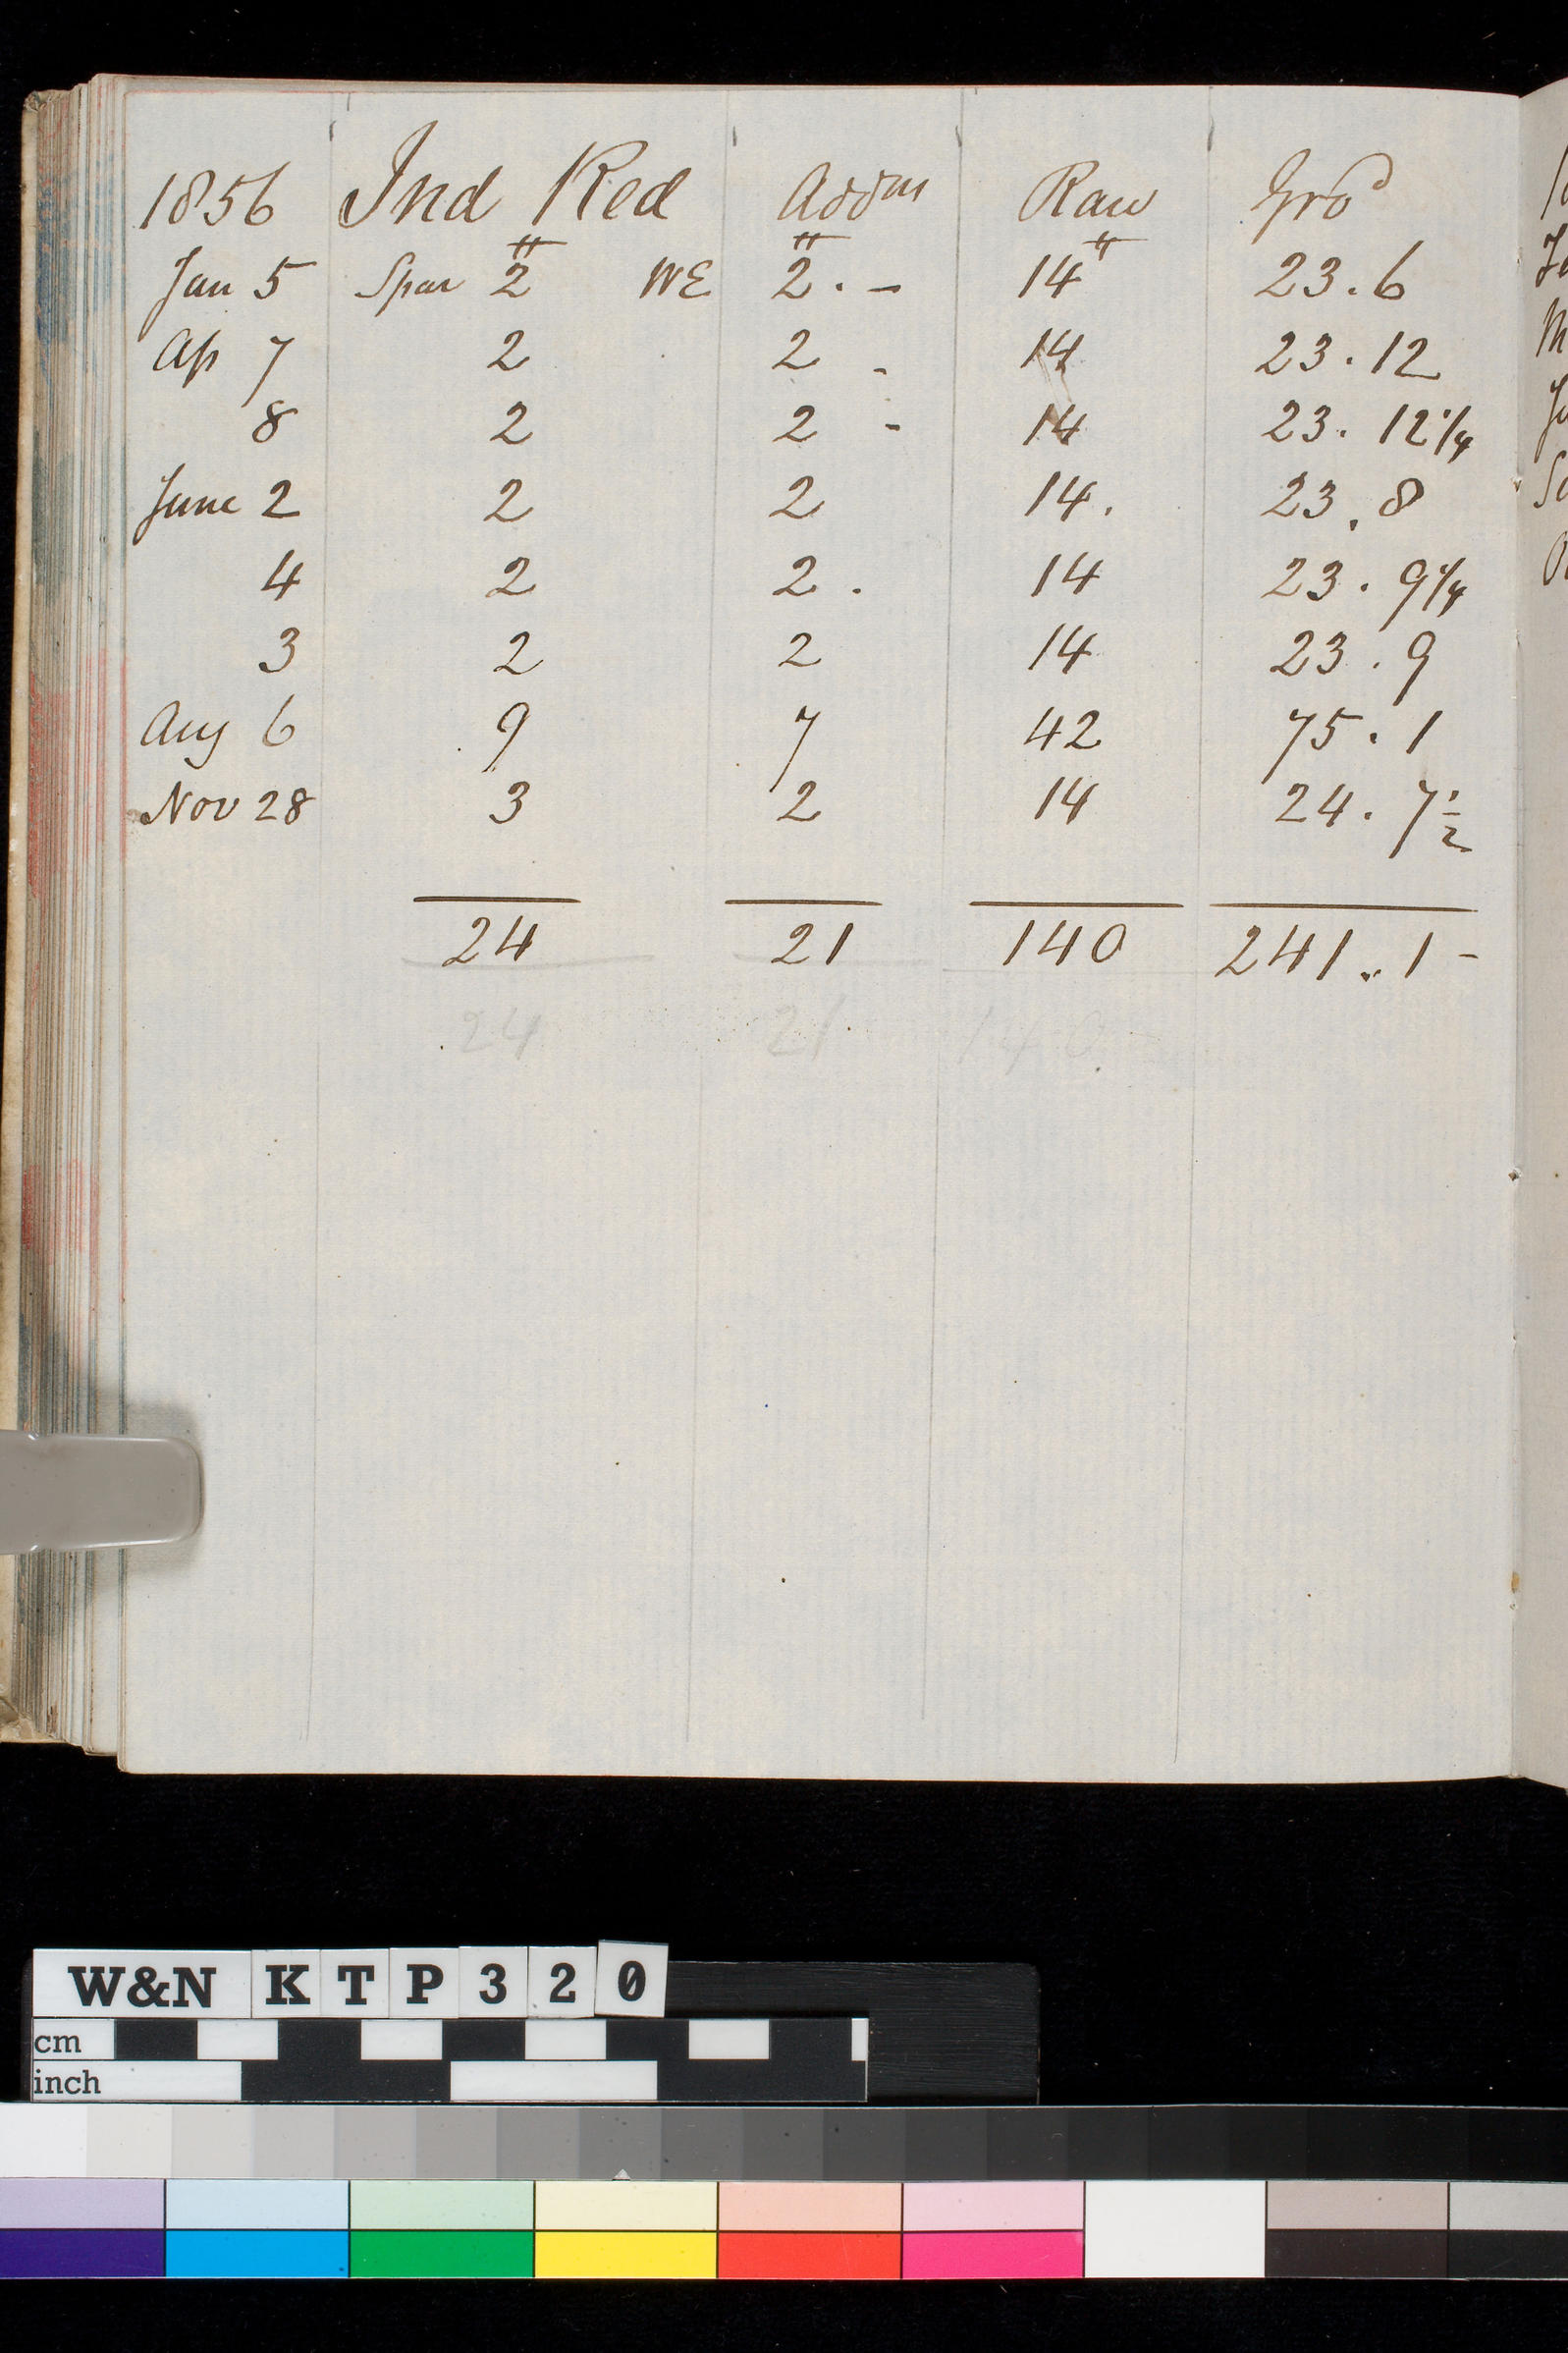 1856 Ind Red Addns Raw Gro^d
Jan 5 Spar 2 WE 2 . - 14 23 . 6
Ap 7 2 2 - 14 23 . 12
8 2 2 - 14 23 . 12 1/4
June 2 2 2 14 . 23 . 8
4 2 2 . 14 23 . 9 1/4
3 2 2 14 23 . 9
Aug 6 9 7 42 75 . 1
Nov 28 3 2 14 24 . 7 1/2
24 21 140 241 .. 1 -
24 21 140
W&N KTP320
cm
inch